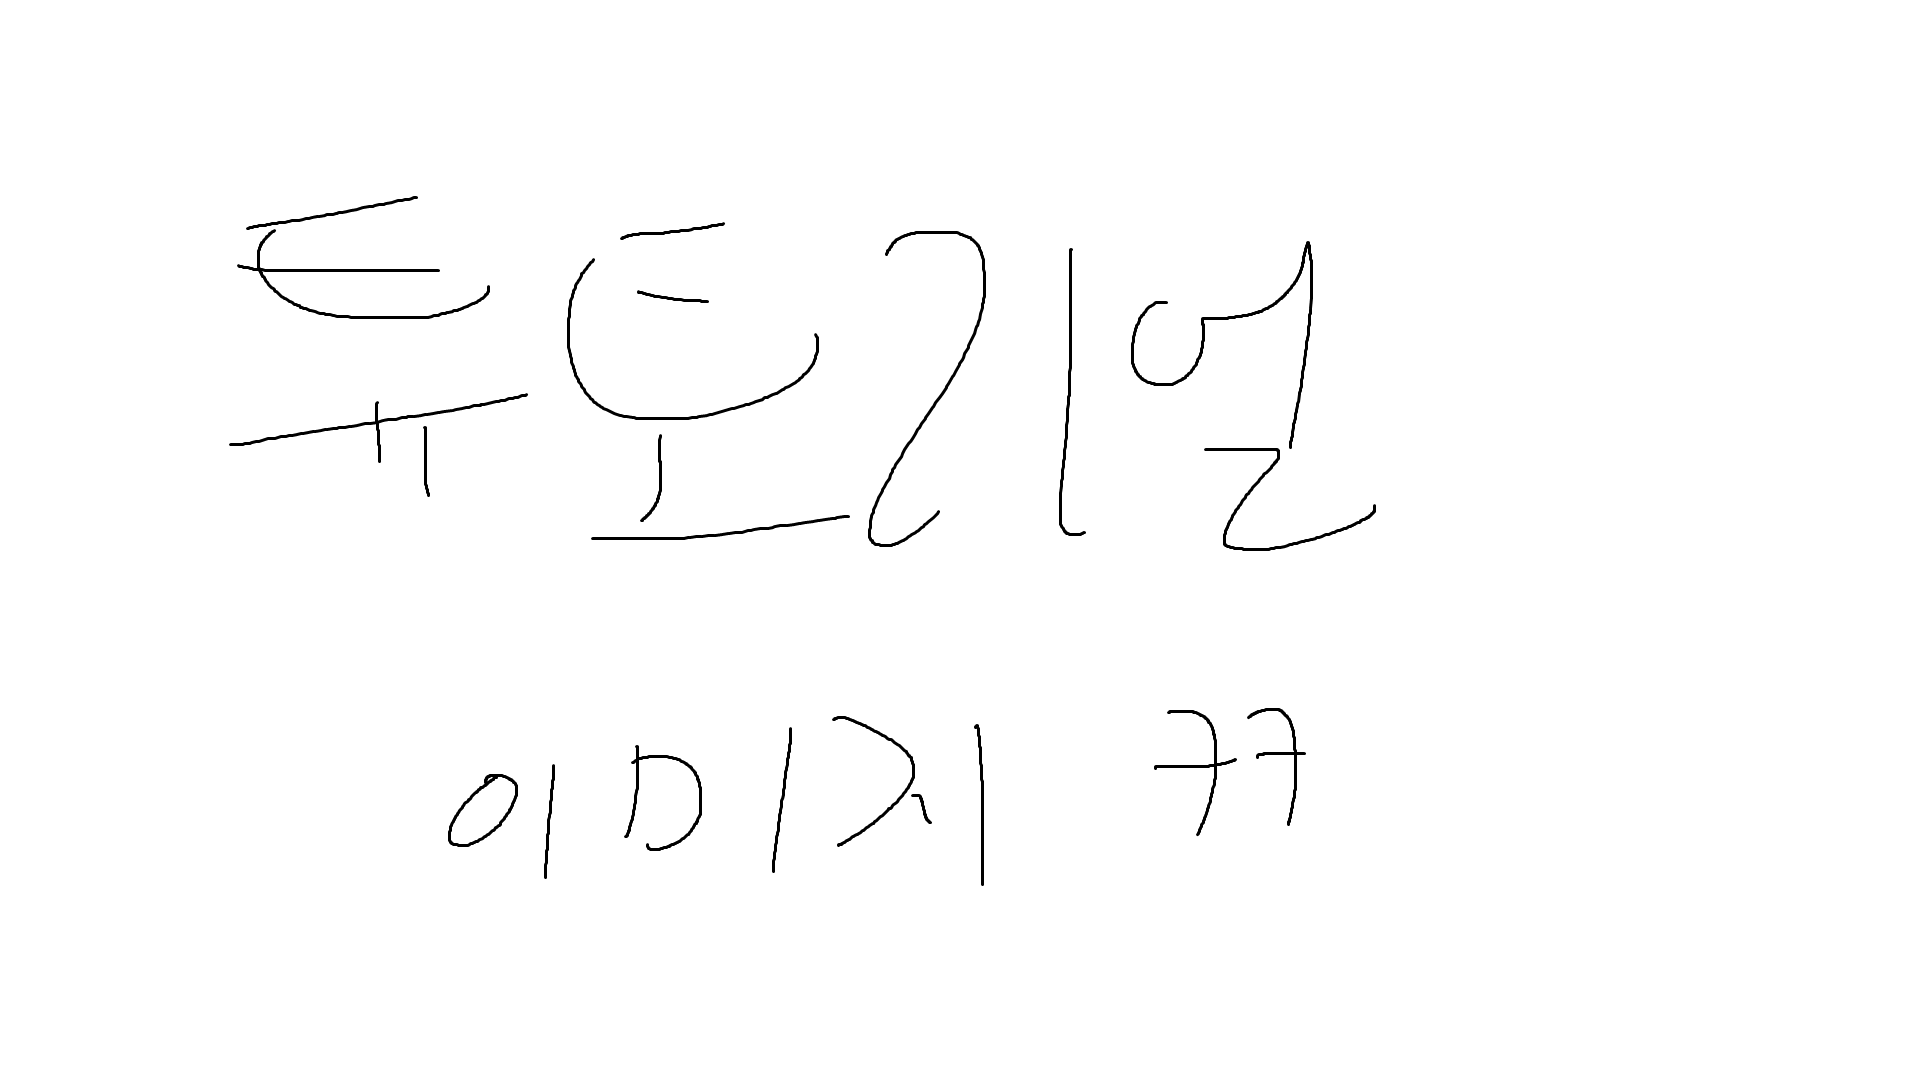 튜토리얼
이미지 ㅋㅋ